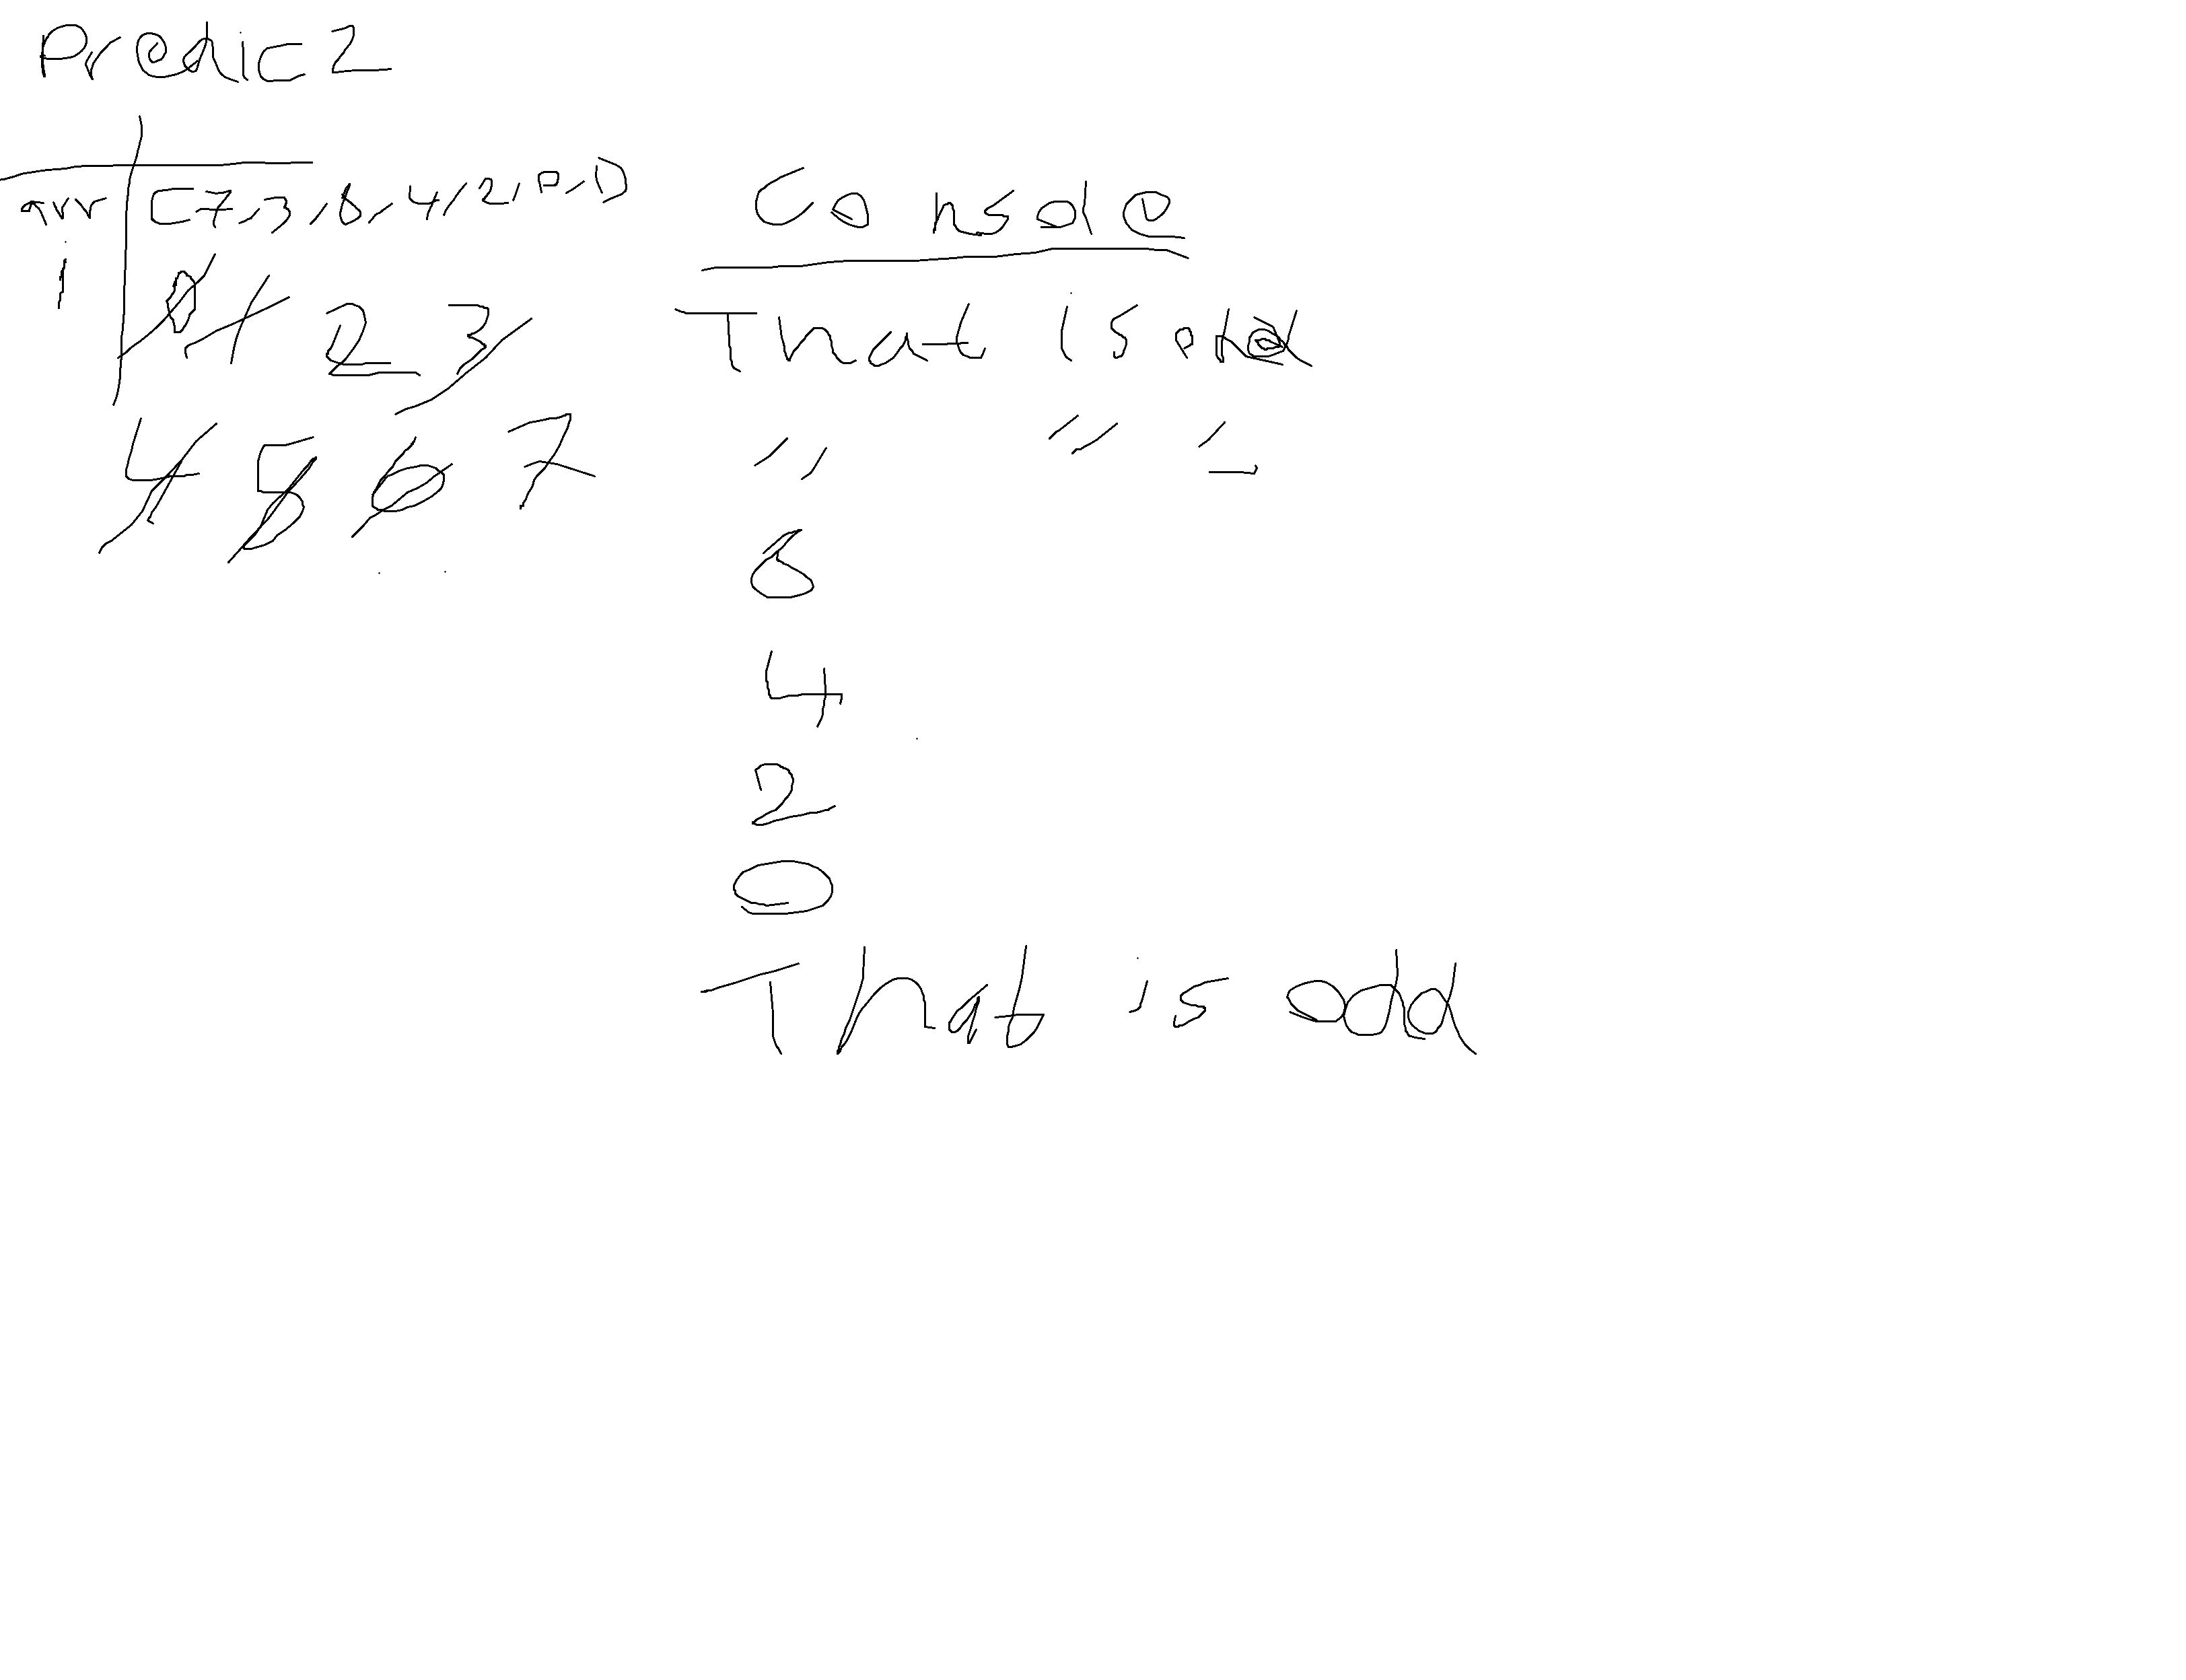 Predic 2
arr [7,3,6,4,2,0,1]
i 0 1 2 3
4 5 6 7
Console
That is odd
" " "
6
4
2
0
That is odd